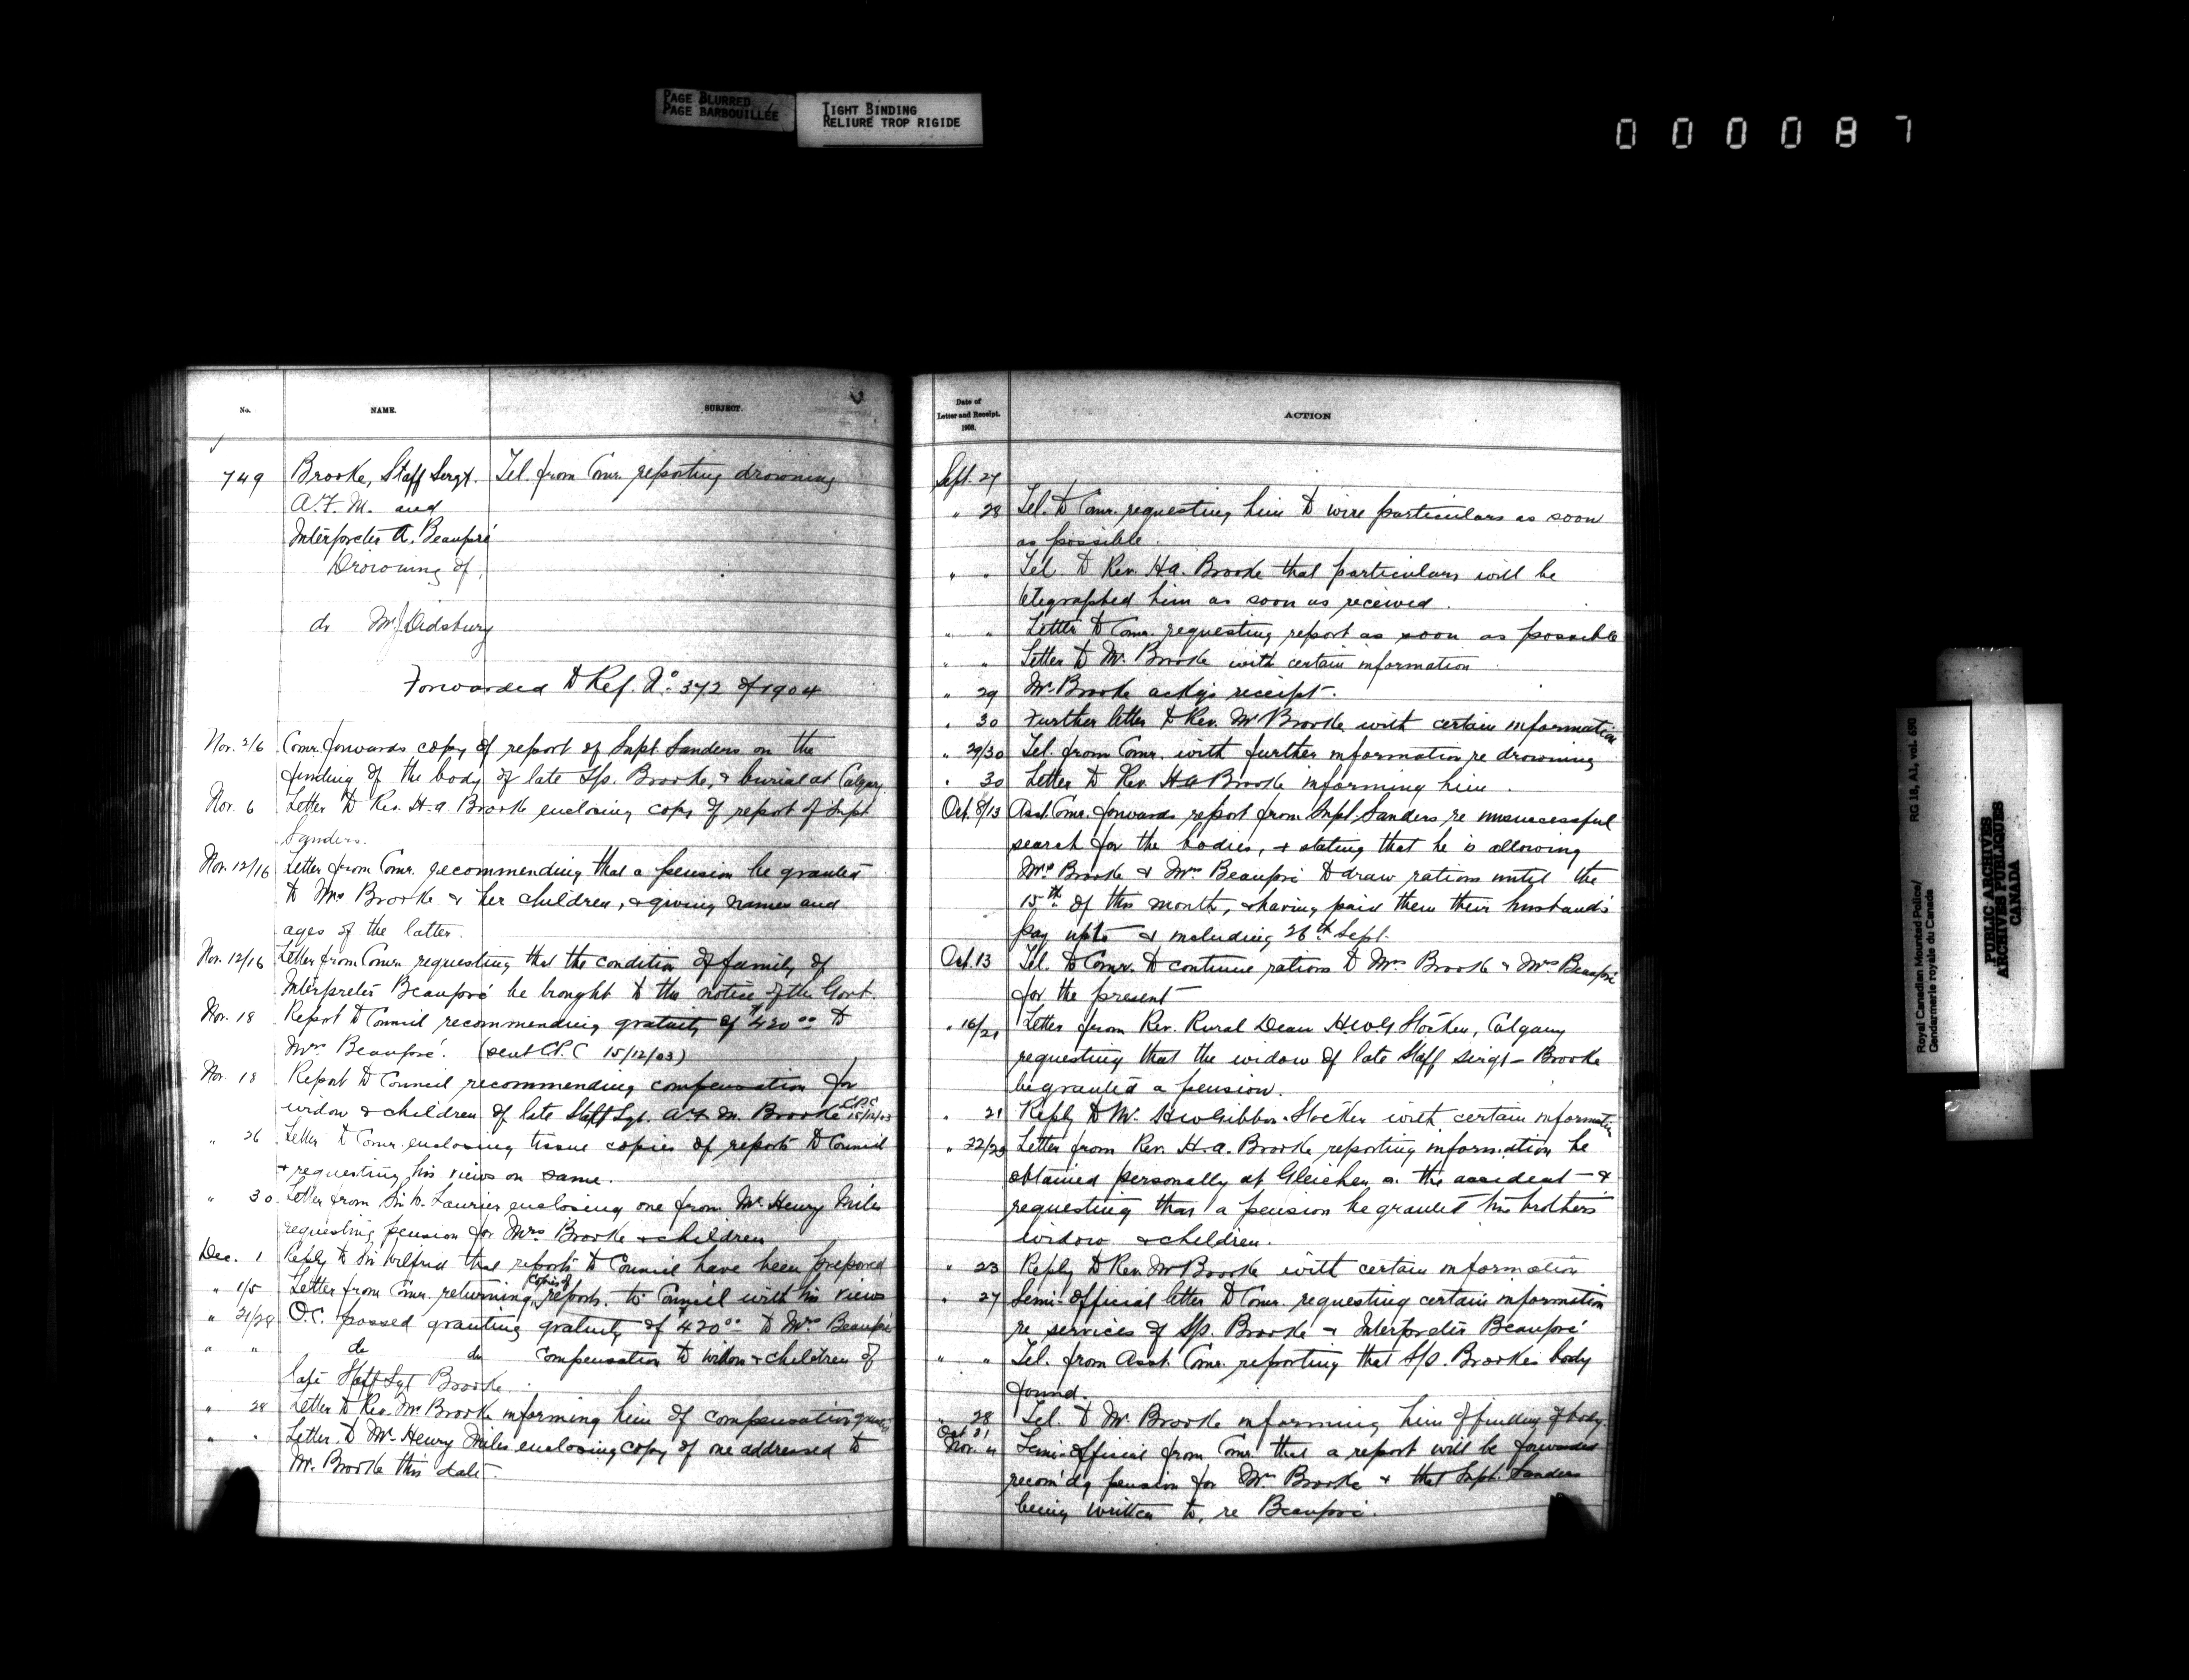 PAGE BLURRED
PAGE BARBOUILLÉE
TIGHT BINDING
RELIURE TROP RIGIDE
000087
No. NAME. SUBJECT.
749 Brooke, Staff Sergt. Tel. from Comr. reporting drowning
A.F.M. and
Interpreter A. Beaupré
Drowning of.
do Mr Didsbury
Forwarded to Ref. No. 372 of 1904
Nov. 2/6 Comr. forwards copy of report of Supt Sanders on the
finding of the body of late S/S. Brooke, & burial at Calgary.
Nov. 6 Letter to Rev. H.A. Brooke enclosing copy of report of Supt
Sanders.
Nov. 12/16 Letter from Comr. recommending that a pension be granted
to Mrs Brooke & her children, & giving names and
ages of the latter.
Nov. 12/16 Letter from Comr. requesting that the condition of family of
Interpreter Beaupré be brought to the notice of the Govt.
Nov. 18 Report to Council recommending gratuity of $420.00 to
Mrs Beaupré. (sent C.P.C 15/12/03)
Nov. 18 Report to Council recommending compensation for
widow & children of late Staff Sgt. A.F.M. Brooke C.P.C 15/12/03
" 26 Letter to Comr. enclosing tissue copies of reports to Council
& requesting his views on same.
" 30 Letter from Sir W. Laurier enclosing one from Mr Henry Miles
requesting pension for Mrs Brooke & children
Dec. 1 Reply to Sir Wilfrid that reports to Council have been prepared
" 1/5 Letter from Comr. returning copies of reports to Council with his views
" 21/28 O.C. passed granting gratuity of $420.00 to Mrs Beaupré
" " do do compensation to widow & children of
late Staff Sgt Brooke.
" 28 Letter to Rev. Mr Brooke informing him of compensation granted
" " Letter to Mr Henry Miles enclosing copy of one addressed to
Mr. Brooke this date.
Date of
Letter and Receipt.
1903.
ACTION
Sept. 27
" 28 Tel. to Comr. requesting him to wire particulars as soon
as possible.
" " Tel to Rev. H.A. Brooke that particulars will be
telegraphed him as soon as received.
" " Letter to Comr. requesting report as soon as possible
" " Letter to Mr. Brooke with certain information
" 29 Mr. Brooke ackgs receipt.
" 30 Further letter to Rev. Mr Brooke with certain information
" 29/30 Tel. from Comr. with further information re drowning
" 30 Letter to Rev. H.A. Brooke informing him.
Oct. 8/13 Asst. Comr. forwards report from Supt. Sanders re unsuccessful
search for the bodies, & stating that he is allowing
Mrs Brooke & Mrs Beaupré to draw rations until the
15th of this month, & having paid them their husband's
pay upto & including 26th Sept.
Oct. 13 Tel. to Comr. to continue rations to Mrs Brooke & Mrs Beaupré
for the present
" 16/21 Letter from Rev. Rural Dean H.W.G Stocken, Calgary
requesting that the widow of late Staff Sergt Brooke
be granted a pension.
" 21 Reply to Mr. H W Gibbon-Stocken with certain information
" 22/23 Letter from Rev. H.A. Brooke reporting information he
obtained personally at Gleichen on the accident &
requesting that a pension be granted his brother's
widow & children.
" 23 Reply to Rev. Mr Brooke with certain information
" 27 Semi-Official letter to Comr. requesting certain information
re services of S/S. Brooke & Interpreter Beaupré
" " Tel. from Asst. Comr. reporting that S/S. Brooke's body
found.
" 28 Tel. to Mr. Brooke informing him of finding of body.
Oct 31
Nov. 4 Semi-Official from Comr that a report will be forwarded
recom'dg pension for Mrs Brooke & that Supt. Sanders
being written to, re Beaupré.
Royal Canadian Mounted Police/
Gendarmerie royale du Canada
RG 18, A1, vol. 690
PUBLIC ARCHIVES
ARCHIVES PUBLIQUES
CANADA